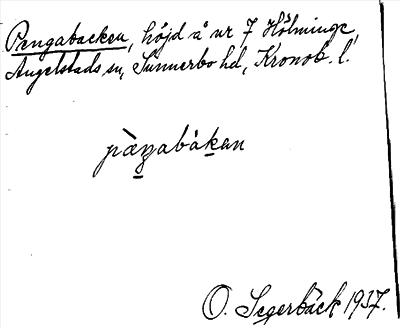 Pengabacken, höjd å nr 7 Hölminge,
Angelstads sn, Sunnerbo hd, Kronob. l.
pàŋabàkan
O. Segerbäck 1937.